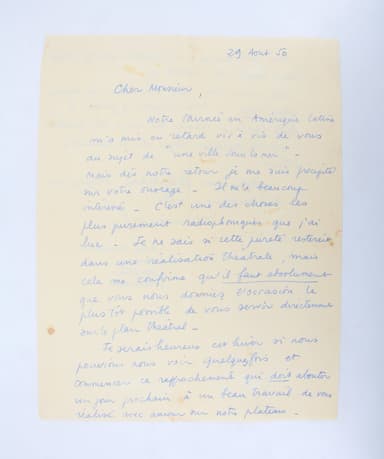 29 Aout 50
Cher Monsieur,
Notre tournée en Amérique Latine
m'a mis en retard vis à vis de vous
au sujet de "une ville sous la mer" -
Mais dès notre retour je me suis précipité
sur votre ouvrage - Il m'a beaucoup
intéressé - C'est une des choses les
plus purement radiophoniques que j'ai
lue - Je ne sais si cette pureté resterait
dans une réalisation théâtrale, mais
cela me confirme qu'il faut absolument
que vous nous donniez l'occasion le
plus tôt possible de vous servir directement
sur le plan théâtral -
Je serais heureux cet hiver si nous
pouvions nous voir quelquefois et
commencer ce rapprochement qui doit aboutir
un jour prochain à un beau travail de vous
réalisé avec amour sur notre plateau -